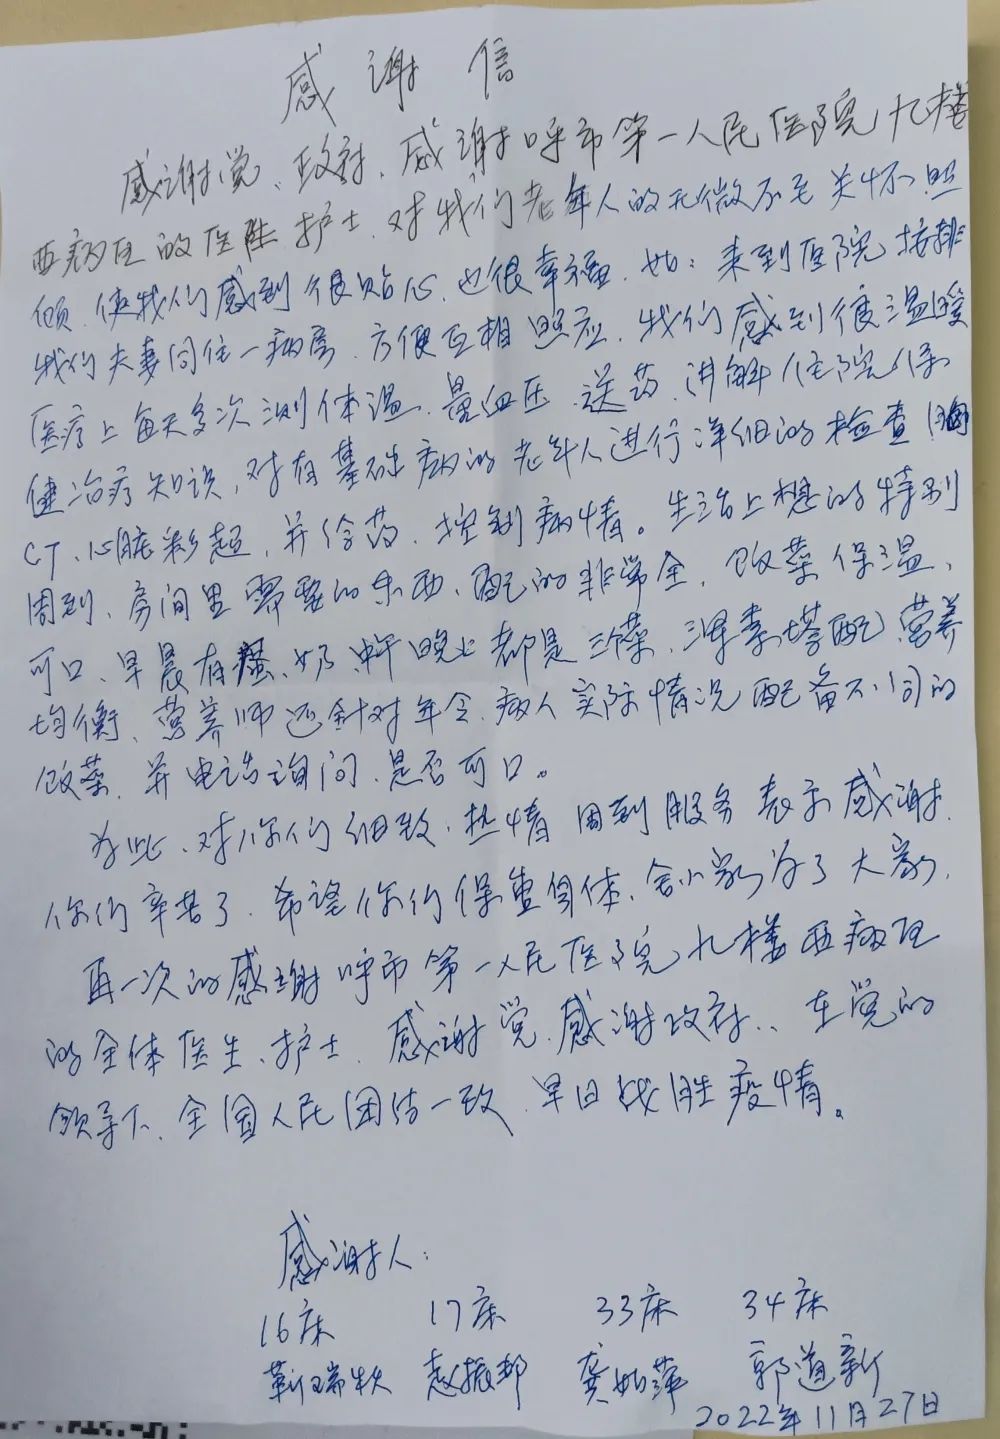 感谢信
感谢党、政府、感谢呼市第一人民医院九楼
西病区的医生护士、对我们老年人的无微不至关怀照
顾、使我们感到很贴心、也很幸福、如：来到医院按排
我们夫妻同住一病房、方便互相照应、我们感到很温暖
医疗上每天多次测体温、量血压、送药、讲解住院保
健治疗知识、对有基础病的老年人进行详细的检查胸
CT、心脏彩超、并给药、控制病情。生活上想的特别
周到、房间里需要的东西、配的非常全、饭菜保温、
可口、早晨有蛋、奶、中午晚上都是三个菜、荤素搭配、营养
均衡、营养师还针对年令、病人实际情况配备不同的
饭菜、并电话询问、是否可口。
为此、对你们细致、热情周到服务表示感谢、
你们辛苦了、希望你们保重身体、舍小家为了大家、
再一次的感谢呼市第一人民医院九楼西病区
的全体医生、护士、感谢党、感谢政府、、在党的
领导下、全国人民团结一致、早日战胜疫情。
感谢人：
16床 17床 33床 34床
靳瑞 赵振邦 龚如萍 郭道新
2022年11月27日